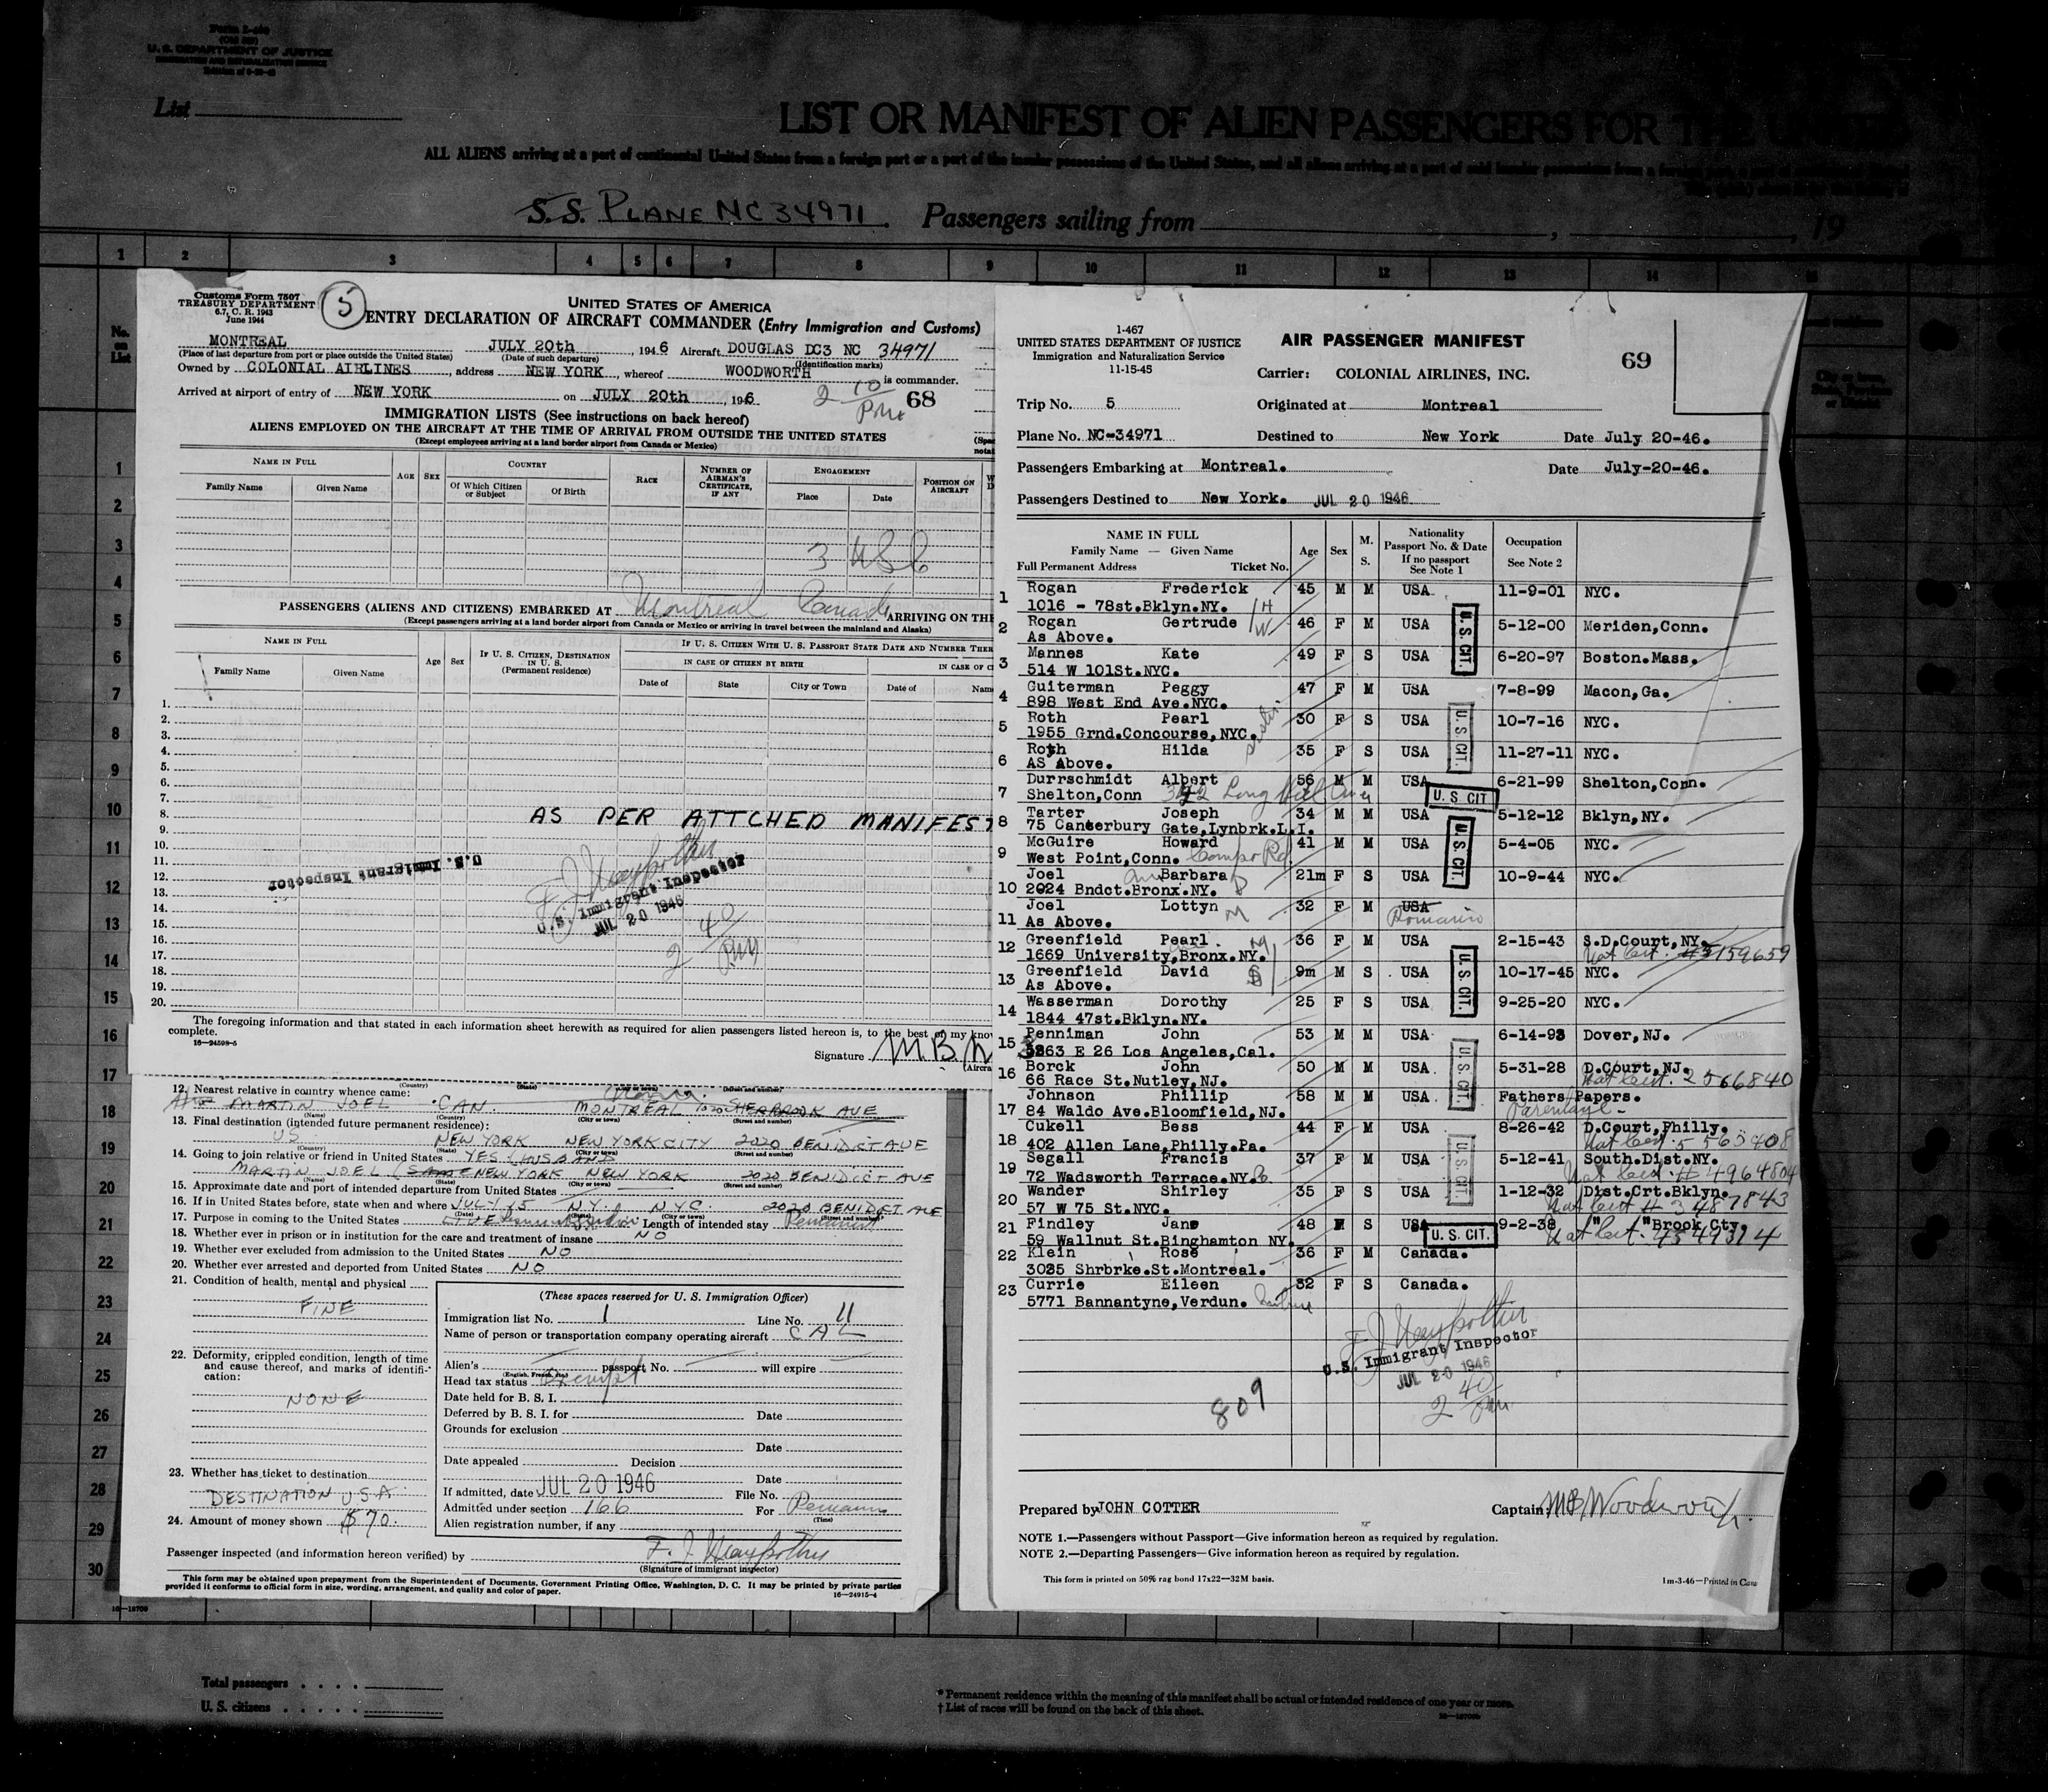 Form I-400
U. S. DEPARTMENT OF JUSTICE
IMMIGRATION AND NATURALIZATION SERVICE
List
LIST OR MANIFEST OF ALIEN PASSENGERS FOR THE UNITED
ALL ALIENS arriving at a port of continental United States from a foreign port or a port of the insular possessions of the United States, and all aliens arriving at a port of said insular possessions from a foreign port, a port of continental
S. S. PLANE NC 34971. Passengers sailing from , , 19
1 2 3 4 5 6 7 8 9 10 11 12 13 14 15
No. on List
Customs Form 7507
TREASURY DEPARTMENT
6.7, C. R. 1943
June 1944
5
UNITED STATES OF AMERICA
ENTRY DECLARATION OF AIRCRAFT COMMANDER (Entry Immigration and Customs)
MONTREAL JULY 20th, 1946 Aircraft DOUGLAS DC3 NC 34971
(Place of last departure from port or place outside the United States) (Date of such departure) (Identification marks)
Owned by COLONIAL AIRLINES, address NEW YORK, whereof WOODWORTH is commander.
Arrived at airport of entry of NEW YORK on JULY 20th, 1946 2 10 PM 68
IMMIGRATION LISTS (See instructions on back hereof)
ALIENS EMPLOYED ON THE AIRCRAFT AT THE TIME OF ARRIVAL FROM OUTSIDE THE UNITED STATES
(Except employees arriving at a land border airport from Canada or Mexico)
NAME IN FULL AGE SEX COUNTRY RACE NUMBER OF AIRMAN'S CERTIFICATE, IF ANY ENGAGEMENT POSITION ON AIRCRAFT
Family Name Given Name Of Which Citizen or Subject Of Birth Place Date
3 USC
PASSENGERS (ALIENS AND CITIZENS) EMBARKED AT Montreal Canada ARRIVING ON THE
(Except passengers arriving at a land border airport from Canada or Mexico or arriving in travel between the mainland and Alaska)
NAME IN FULL Age Sex IF U. S. CITIZEN, DESTINATION IN U. S. (Permanent residence) IF U. S. CITIZEN WITH U. S. PASSPORT STATE DATE AND NUMBER THER
IN CASE OF CITIZEN BY BIRTH IN CASE OF CI
Family Name Given Name Date of State City or Town Date of Nam
1.
2.
3.
4.
5.
6.
7.
8. AS PER ATTCHED MANIFEST
9.
10.
11.
12.
13.
14.
15.
16.
17.
18.
19.
20.
U.S. Immigrant Inspector
U.S. Immigrant Inspector
JUL 20 1946
2 40 PM
The foregoing information and that stated in each information sheet herewith as required for alien passengers listed hereon is, to the best of my know
complete.
16—24598-5
Signature M.B.W
(Aircra
12. Nearest relative in country whence came:
MARTIN JOEL CAN. MONTREAL 1020 SHERBROOK AVE
(Name) (Country) (City or town) (Street and number)
13. Final destination (intended future permanent residence):
US NEW YORK NEW YORK CITY 2020 BENIDICT AVE
(Country) (State) (City or town) (Street and number)
14. Going to join relative or friend in United States YES (HUSBAND
MARTIN JOEL (SAME NEW YORK NEW YORK 2020 BENIDICT AVE
(Name) (State) (City or town) (Street and number)
15. Approximate date and port of intended departure from United States
16. If in United States before, state when and where JULY 15 N.Y. N.Y.C. 2020 BENIDICT AVE
(Date) (State) (City or town) (Street and number)
17. Purpose in coming to the United States LIVE Length of intended stay Permanent
18. Whether ever in prison or in institution for the care and treatment of insane NO
19. Whether ever excluded from admission to the United States NO
20. Whether ever arrested and deported from United States NO
21. Condition of health, mental and physical
FINE
22. Deformity, crippled condition, length of time and cause thereof, and marks of identification:
NONE
23. Whether has ticket to destination
DESTINATION USA
24. Amount of money shown $70.
(These spaces reserved for U. S. Immigration Officer)
Immigration list No. 1 Line No. 11
Name of person or transportation company operating aircraft CAL
Alien's passport No. will expire
(English, French, etc.)
Head tax status Exempt
Date held for B. S. I.
Deferred by B. S. I. for Date
Grounds for exclusion
Date
Date appealed Decision
Date
If admitted, date JUL 20 1946 File No.
Admitted under section 166 For Permanent
(Time)
Alien registration number, if any
Passenger inspected (and information hereon verified) by
(Signature of immigrant inspector)
This form may be obtained upon prepayment from the Superintendent of Documents, Government Printing Office, Washington, D. C. It may be printed by private parties
provided it conforms to official form in size, wording, arrangement, and quality and color of paper. 16—24915-4
1-467
UNITED STATES DEPARTMENT OF JUSTICE
Immigration and Naturalization Service
11-15-45
AIR PASSENGER MANIFEST
69
Carrier: COLONIAL AIRLINES, INC.
Trip No. 5 Originated at Montreal
Plane No. NC-34971 Destined to New York Date July 20-46.
Passengers Embarking at Montreal. Date July-20-46.
Passengers Destined to New York. JUL 20 1946
NAME IN FULL Age Sex M. S. Nationality Passport No. & Date If no passport See Note 1 Occupation See Note 2
Family Name — Given Name
Full Permanent Address Ticket No.
1 Rogan Frederick 45 M M USA 11-9-01 NYC.
1016 - 78st.Bklyn.NY. H
2 Rogan Gertrude W 46 F M USA 5-12-00 Meriden,Conn.
As Above.
3 Mannes Kate 49 F S USA 6-20-97 Boston.Mass.
514 W 101St.NYC.
4 Guiterman Peggy 47 F M USA 7-8-99 Macon,Ga.
898 West End Ave.NYC.
5 Roth Pearl 30 F S USA 10-7-16 NYC.
1955 Grnd.Concourse,NYC. sister
6 Roth Hilda 35 F S USA 11-27-11 NYC.
AS Above.
7 Durrschmidt Albert 56 M M USA 6-21-99 Shelton,Conn.
Shelton,Conn 342 Long Hill Ave
8 Tarter Joseph 34 M M USA 5-12-12 Bklyn,NY.
75 Canterbury Gate,Lynbrk.L.I.
9 McGuire Howard 41 M M USA 5-4-05 NYC.
West Point,Conn. Campo Rd.
10 Joel Barbara 21m F S USA 10-9-44 NYC.
2024 Bndct.Bronx.NY.
11 Joel Lottyn M 32 F M USA
As Above.
12 Greenfield Pearl. M 36 F M USA 2-15-43 S.D.Court,NY.
1669 University,Bronx.NY. Nat Cert. #5159659
13 Greenfield David S 9m M S USA 10-17-45 NYC.
As Above.
14 Wasserman Dorothy 25 F S USA 9-25-20 NYC.
1844 47st.Bklyn.NY.
15 Penniman John 53 M M USA 6-14-93 Dover,NJ.
5263 E 26 Los Angeles,Cal.
16 Borck John 50 M M USA 5-31-28 D.Court,NJ.
66 Race St.Nutley,NJ. Nat Cert. 2566840
17 Johnson Phillip 58 M M USA Fathers Papers.
84 Waldo Ave.Bloomfield,NJ. Parentage-
18 Cukell Bess 44 F M USA 8-26-42 D.Court,Philly.
402 Allen Lane,Philly.Pa. Nat Cert. 5563408
19 Segall Francis 37 F M USA 5-12-41 South.Dist.NY.
72 Wadsworth Terrace.NY. Nat Cert # 4964804
20 Wander Shirley 35 F S USA 1-12-32 Dist.Crt.Bklyn.
57 W 75 St.NYC. Nat Cert # 3487843
21 Findley Jane 48 F S USA 9-2-38 " "Brook Cty.
59 Wallnut St.Binghamton NY. Nat Cert. 4349314
22 Klein Rose 36 F M Canada.
3035 Shrbrke.St.Montreal.
23 Currie Eileen 32 F S Canada.
5771 Bannantyne,Verdun.
U.S. CIT.
U.S. CIT.
U. S CIT
U.S. CIT.
U.S. CIT.
U.S. CIT.
U.S. CIT.
U. S. CIT.
U.S. Immigrant Inspector
JUL 20 1946
2 40 PM
809
Prepared by JOHN COTTER Captain: MB Woodworth.
NOTE 1.—Passengers without Passport—Give information hereon as required by regulation.
NOTE 2.—Departing Passengers—Give information hereon as required by regulation.
This form is printed on 50% rag bond 17x22—32M basis. 1m-3-46—Printed in Cana
1
2
3
4
5
6
7
8
9
10
11
12
13
14
15
16
17
18
19
20
21
22
23
24
25
26
27
28
29
30
Total passengers . . . .
U. S. citizens . . . . .
* Permanent residence within the meaning of this manifest shall be actual or intended residence of one year or more.
† List of races will be found on the back of this sheet.